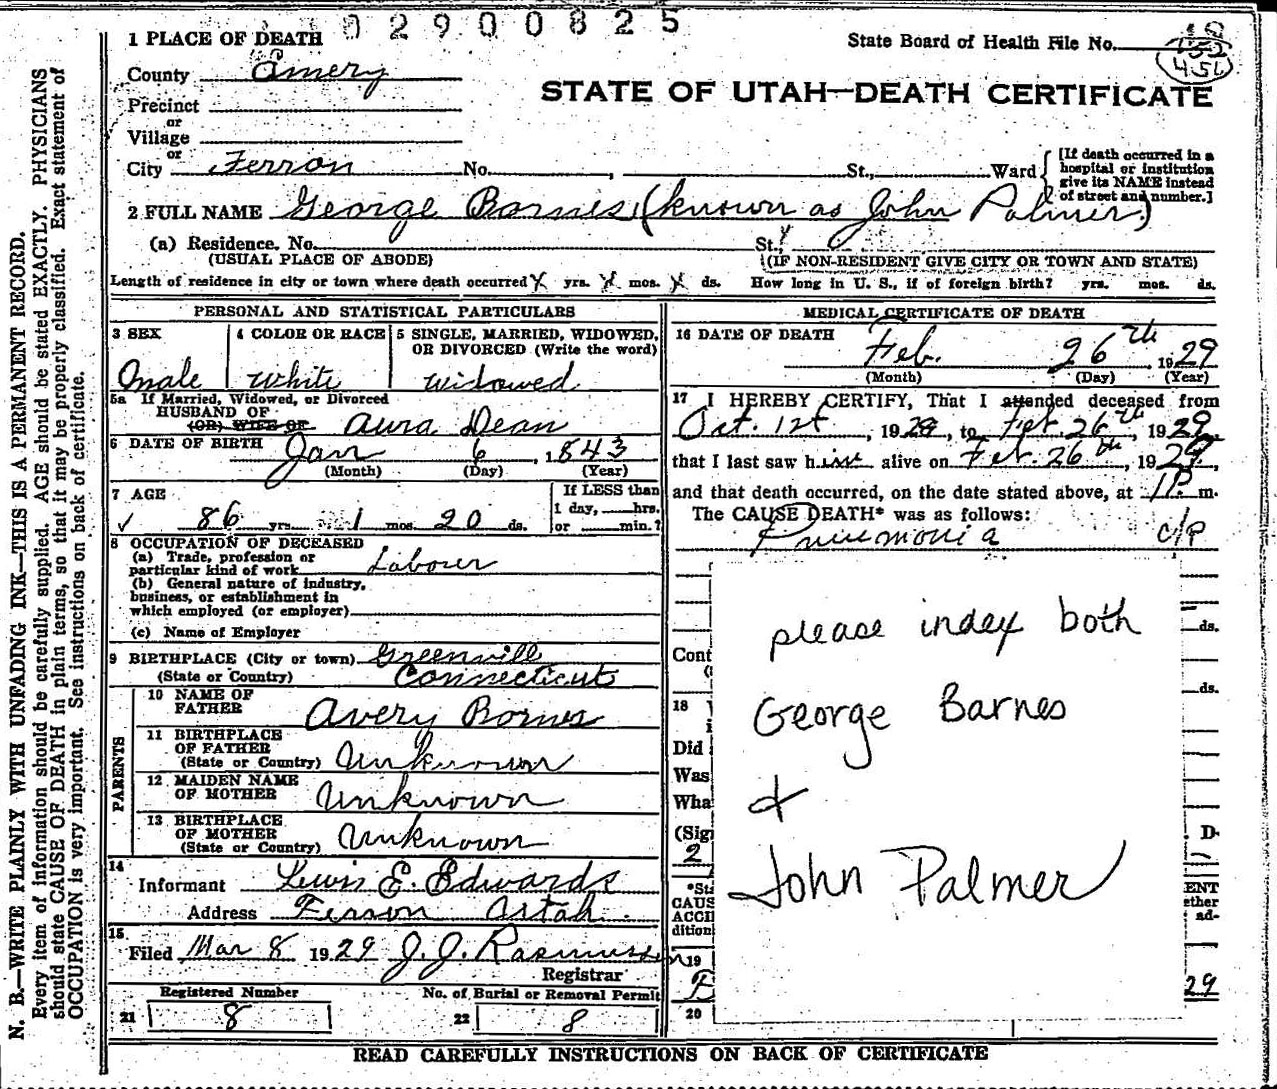 0 2 9 0 0 8 2 5
1 PLACE OF DEATH
State Board of Health File No.
County Emery
STATE OF UTAH—DEATH CERTIFICATE
Precinct
or
Village
or
City Ferron No. , St., Ward
[If death occurred in a
hospital or institution
give its NAME instead
of street and number.]
2 FULL NAME George Barnes (known as John Palmer)
(a) Residence. No. St.,
(USUAL PLACE OF ABODE)
(IF NON-RESIDENT GIVE CITY OR TOWN AND STATE)
Length of residence in city or town where death occurred X yrs. X mos. X ds. How long in U. S., if of foreign birth? yrs. mos. ds.
PERSONAL AND STATISTICAL PARTICULARS
3 SEX
Male
4 COLOR OR RACE
White
5 SINGLE, MARRIED, WIDOWED,
OR DIVORCED (Write the word)
Widowed
5a If Married, Widowed, or Divorced
HUSBAND OF
(OR) WIFE OF Aura Dean
6 DATE OF BIRTH Jan 6, 1843
(Month) (Day) (Year)
7 AGE
If LESS than
1 day, hrs.
or min.?
✓ 86 yrs. 1 mos. 20 ds.
8 OCCUPATION OF DECEASED
(a) Trade, profession or
particular kind of work Laborer
(b) General nature of industry,
business, or establishment in
which employed (or employer)
(c) Name of Employer
9 BIRTHPLACE (City or town) Greenvill
(State or Country) Connecticut
PARENTS
10 NAME OF
FATHER Avery Barnes
11 BIRTHPLACE
OF FATHER
(State or Country) Unknown
12 MAIDEN NAME
OF MOTHER Unknown
13 BIRTHPLACE
OF MOTHER
(State or Country) Unknown
14
Informant Lewis E. Edwards
Address Ferron Utah
15
Filed Mar 8 1929 J. J. Rasmussen
Registrar
Registered Number
21 8
No. of Burial or Removal Permit
22 8
MEDICAL CERTIFICATE OF DEATH
16 DATE OF DEATH
Feb. 26th 1929
(Month) (Day) (Year)
17 I HEREBY CERTIFY, That I attended deceased from
Oct. 1st, 1928, to Feb. 26th, 1929,
that I last saw him alive on Feb. 26th, 1929,
and that death occurred, on the date stated above, at 1 P. m.
The CAUSE DEATH* was as follows:
Pneumonia c/p
ds.
Cont
ds.
18
Did
Was
Wha
(Sig
. D.
2
*St
CAUS
ACCI
dition
ENT
ether
ad-
19
F
29
20
please index both
George Barnes
&
John Palmer
READ CAREFULLY INSTRUCTIONS ON BACK OF CERTIFICATE
N. B.—WRITE PLAINLY WITH UNFADING INK—THIS IS A PERMANENT RECORD.
Every item of information should be carefully supplied. AGE should be stated EXACTLY. PHYSICIANS
should state CAUSE OF DEATH in plain terms, so that it may be properly classified. Exact statement of
OCCUPATION is very important. See instructions on back of certificate.